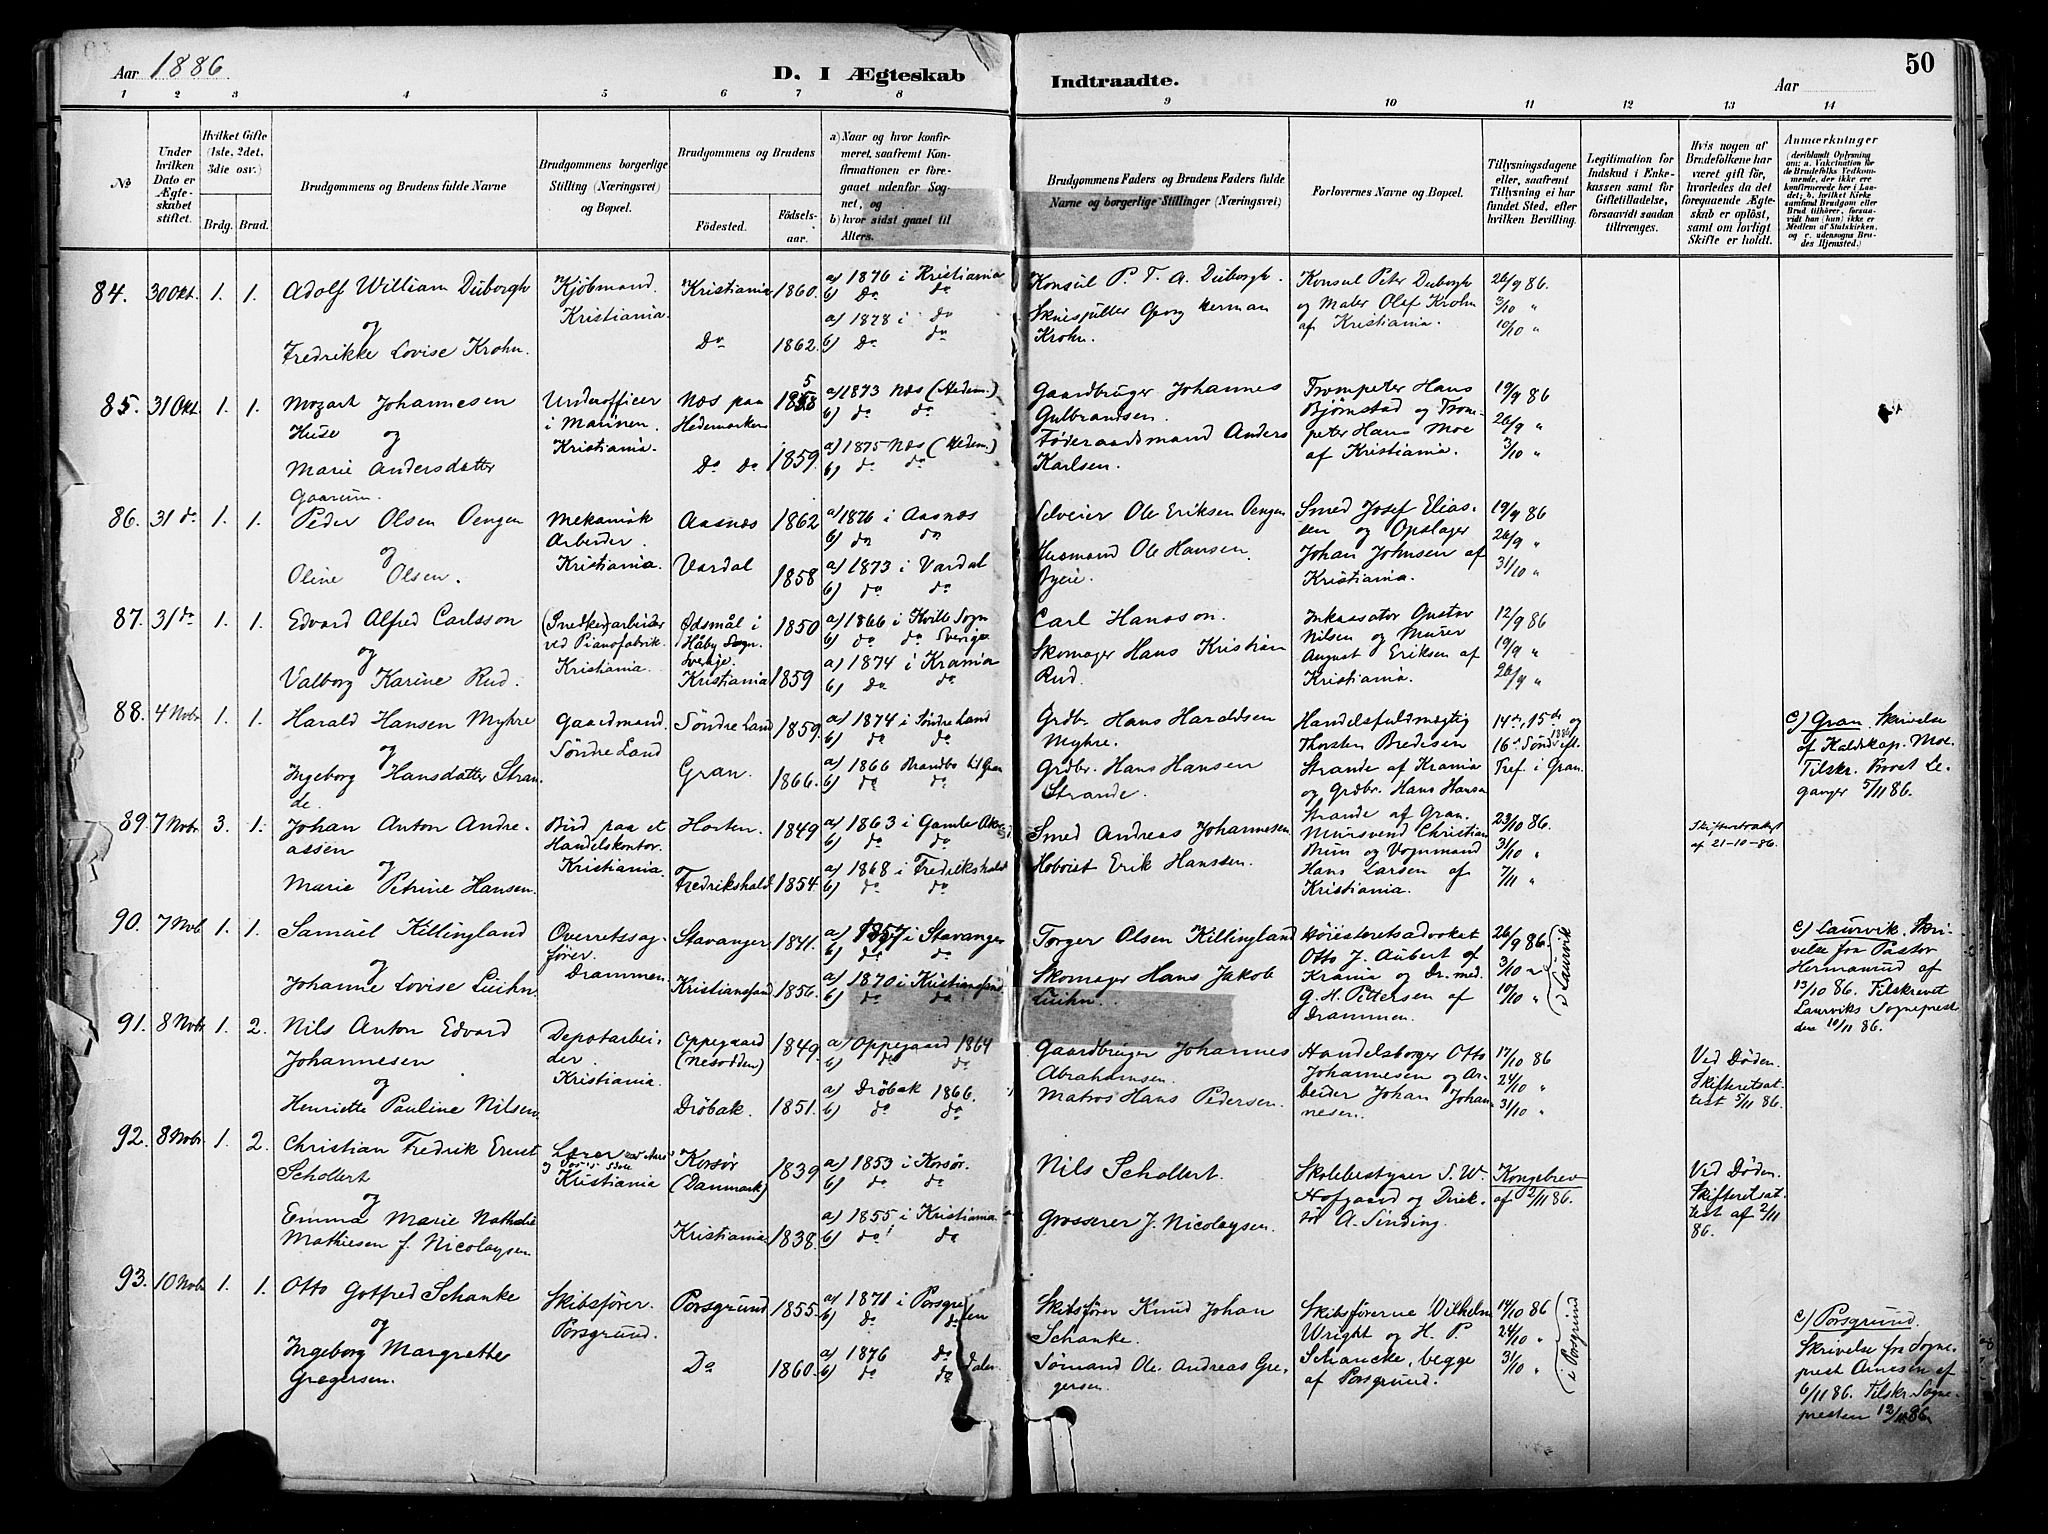 Aar 1886
D. I Ægteskab Indtraadte.
Aar
50
1 2 3 4 5 6 7 8 9 10 11 12 13 14
№
Under hvilken Dato er Ægteskabet stiftet.
Hvilket Gifte (1ste, 2det, 3die osv.)
Brdg. Brud.
Brudgommens og Brudens fulde Navne
Brudgommens borgerlige Stilling (Næringsvei) og Bopæl.
Brudgommens og Brudens
Födested.
Födselsaar.
a) Naar og hvor konfirmeret, saafremt Konfirmationen er foregaaet udenför Sognet, og
b) hvor sidst gaaet til Alters.
Brudgommens Faders og Brudens Faders fulde Navne og borgerlige Stillinger (Næringsvei)
Forlovernes Navne og Bopæl.
Tillysningsdagene eller, saafremt Tillysning ei har fundet Sted, efter hvilken Bevilling.
Legitimation for Indskud i Enkekassen samt for Giftetilladelse, forsaavidt saadan tiltrænges.
Hvis nogen af Brudefolkene har været gift för, hvorledes da det foregaaende Ægteskab er oplöst, samt om lovligt Skifte er holdt.
Anmærkninger
(deriblandt Oplysning om: a. Vakcination för de Brudefolks Vedkommende, der ikke ere konfirmerede her i Landet, b. hvilket Kirkesamfund Brudgom eller Brud tilhörer, forsaavidt han (hun) ikke er Medlem af Statskirken, og c. udensogns Brudes Hjemsted.)
84. 30 Okt. 1. 1. Adolf William Duborgh
og
Fredrikke Lovise Krohn.
Kjøbmand.
Kristiania.
Kristiania 1860.
Do 1862.
a) 1876 i Kristiania
b) Do do
a) 1878 i do
b) Do do
Konsul P. T. A. Duborgh.
Skuespiller Georg Herman
Krohn.
Konsul Peter Duborgh
og Maler Olaf Krohn
af Kristiania.
26/9 86.
3/10 "
10/10 "
85. 31 Okt. 1. 1. Mozart Johannesen
Hude og
Marie Andersdatter
Gaarum.
Underofficer
i Marinen.
Kristiania.
Næs paa
Hedemarken
Do Do 1859.
a) 1873 Næs (Hedem.)
b) do do
a) 1875 Næs (Hedem.)
b) do do
Gaardbruger Johannes
Gulbrandsen.
Føderaadsmand Anders
Karlsen.
Trompeter Hans
Bjørnstad og Trompeter
Hans Moe
af Kristiania.
19/9 86
26/9 "
3/10 "
86. 31 do 1. 1. Peder Olsen Oengen
og
Oline Olsen.
Mekanisk
Arbeider.
Kristiania.
Aasnæs 1862
Vardal 1858
a) 1876 i Aasnæs
b) do do
a) 1873 i Vardal
b) do do
Selveier Ole Eriksen Oengen
Husmand Ole Hansen
Smed Josef Eliassen
og Opslager
Johan Johnsen af
Kristiania.
19/9 86
26/9 "
31/10 "
87. 31 do 1. 1. Edvard Alfred Carlsson
og
Valborg Karine Rud.
(Snedker) arbeider
ved Pianofabrik.
Kristiania.
Ødsmål i
Håby Sogn.
Sverige.
Kristiania 1850
1859
a) 1866 i Kville Sogn
b) do do Sverige
a) 1874 i Krania
b) Do do
Carl Hansson.
Skomager Hans Kristian
Rud.
Inkassator Gustav
Nilsen og Murer
August Eriksen af
Kristiania.
12/9 86
19/9 "
26/9 "
88. 4 Nvbr. 1. 1. Harald Hansen Myhre
og
Ingeborg Hansdatter Strande.
Gaardmand.
Søndre Land
Søndre Land 1859.
Gran. 1866.
a) 1874 i Søndre Land
b) do do
a) 1866 Brandbo til Gran
b) do do
Grdbr. Hans Haraldsen
Myhre.
Grdbr. Hans Hansen
Strande.
Handelsfuldmægtig
Thorsten Bredesen
Strande af Krania
og Grdbr. Hans Hansen
Strande af Gran.
14de, 15de og
16de Sønd. e. Tref. i Gran.
c) Gran. Skrivelse
af Kaldskap. Moe.
Tilskr. Provst Leganger
5/11 86.
89. 7 Nvbr. 3. 1. Johan Anton Andreassen
og
Marie Petrine Hansen.
Bud paa et
Handelskontor.
Kristiania.
Horten. 1849
Fredrikshald 1854.
a) 1863 i Gamle Aker
b) do do
a) 1868 i Fredrikshald
b) do do
Smed Andreas Johannesen
Hoboist Erik Hanssen.
Mursvend Christian
og Vognmand
Hans Larsen af
Kristiania.
23/10 86.
3/10 "
7/11 "
Skifteattest
af 21-10-86.
90. 7 Nvb. 1. 1. Samuel Killingland
og
Johanne Lovise Luihn.
Overretssagfører.
Drammen.
Stavanger 1841.
Kristianssand 1856.
a) 1857 i Stavanger
b) do do
a) 1870 i Kristianssand
b) do do
Torger Olsen Killingland
Skomager Hans Jakob
Luihn.
Høiesteretsadvokat
Otto J. Aubert af
Krania og Dr. med.
G. H. Pettersen af
Drammen.
26/9 86.
3/10 "
10/10 "
i Laurvik
c) Laurvik. Skrivelse
fra Pastor
Hermanrud af
13/10 86. Tilskrevet
Laurviks Sogneprest
den 10/11 86.
91. 8 Nvbr. 1. 2. Nils Anton Edvard
Johannesen
og
Henriette Pauline Nilsen
Depotarbeider.
Kristiania.
Oppegaard
(Nesodden) 1849.
Drøbak. 1851.
a) Oppegaard 1864
b) do do
a) Drøbak 1866.
b) do do
Gaardbruger Johannes
Abrahamsen.
Matros Hans Pedersen.
Handelsborger Otto
Johannesen og Arbeider
Johan Johannesen.
17/10 86
24/10 "
31/10 "
Ved Døden.
Skifteretsattest
5/11 86.
92. 8 Nvbr. 1. 2. Christian Fredrik Ernst
Schollert
og
Emma Marie Nathalie
Mathiesen f. Nicolaysen
Lærer ved Aars'
og Voss's Skole
Kristiania
Korsør
(Danmark) 1839
Kristiania 1838.
a) 1853 i Korsør.
b) do do
a) 1855 i Kristiania.
b) do do
Nils Schollert.
Grosserer J. Nicolaysen.
Skolebestyrer S. W.
Hofgaard og Direktør
A. Sinding.
Kongebrev
af 2/11 86.
Ved Døden.
Skifteretsattest
af 2/11
86.
93. 10 Nvbr 1. 1. Otto Gotfred Schanke
og
Ingeborg Margrethe
Gregersen.
Skibsfører.
Porsgrund.
Porsgrund 1855.
Do 1860.
a) 1871 i Porsgrunden
b) do do
a) 1876 do
b) do do
Skibsfører Knud Johan
Schanke.
Sømand Ole Andreas Gregersen.
Skibsførerne Wilhelm
Wright og H. P.
Schancke, begge
af Porsgrund.
17/10 86
24/10 "
31/10 "
i Porsgrund
c) Porsgrund.
Skrivelse fra Sogneprest
Arnesen af
6/11 86. Tilskr. Sognepresten
12/11 86.